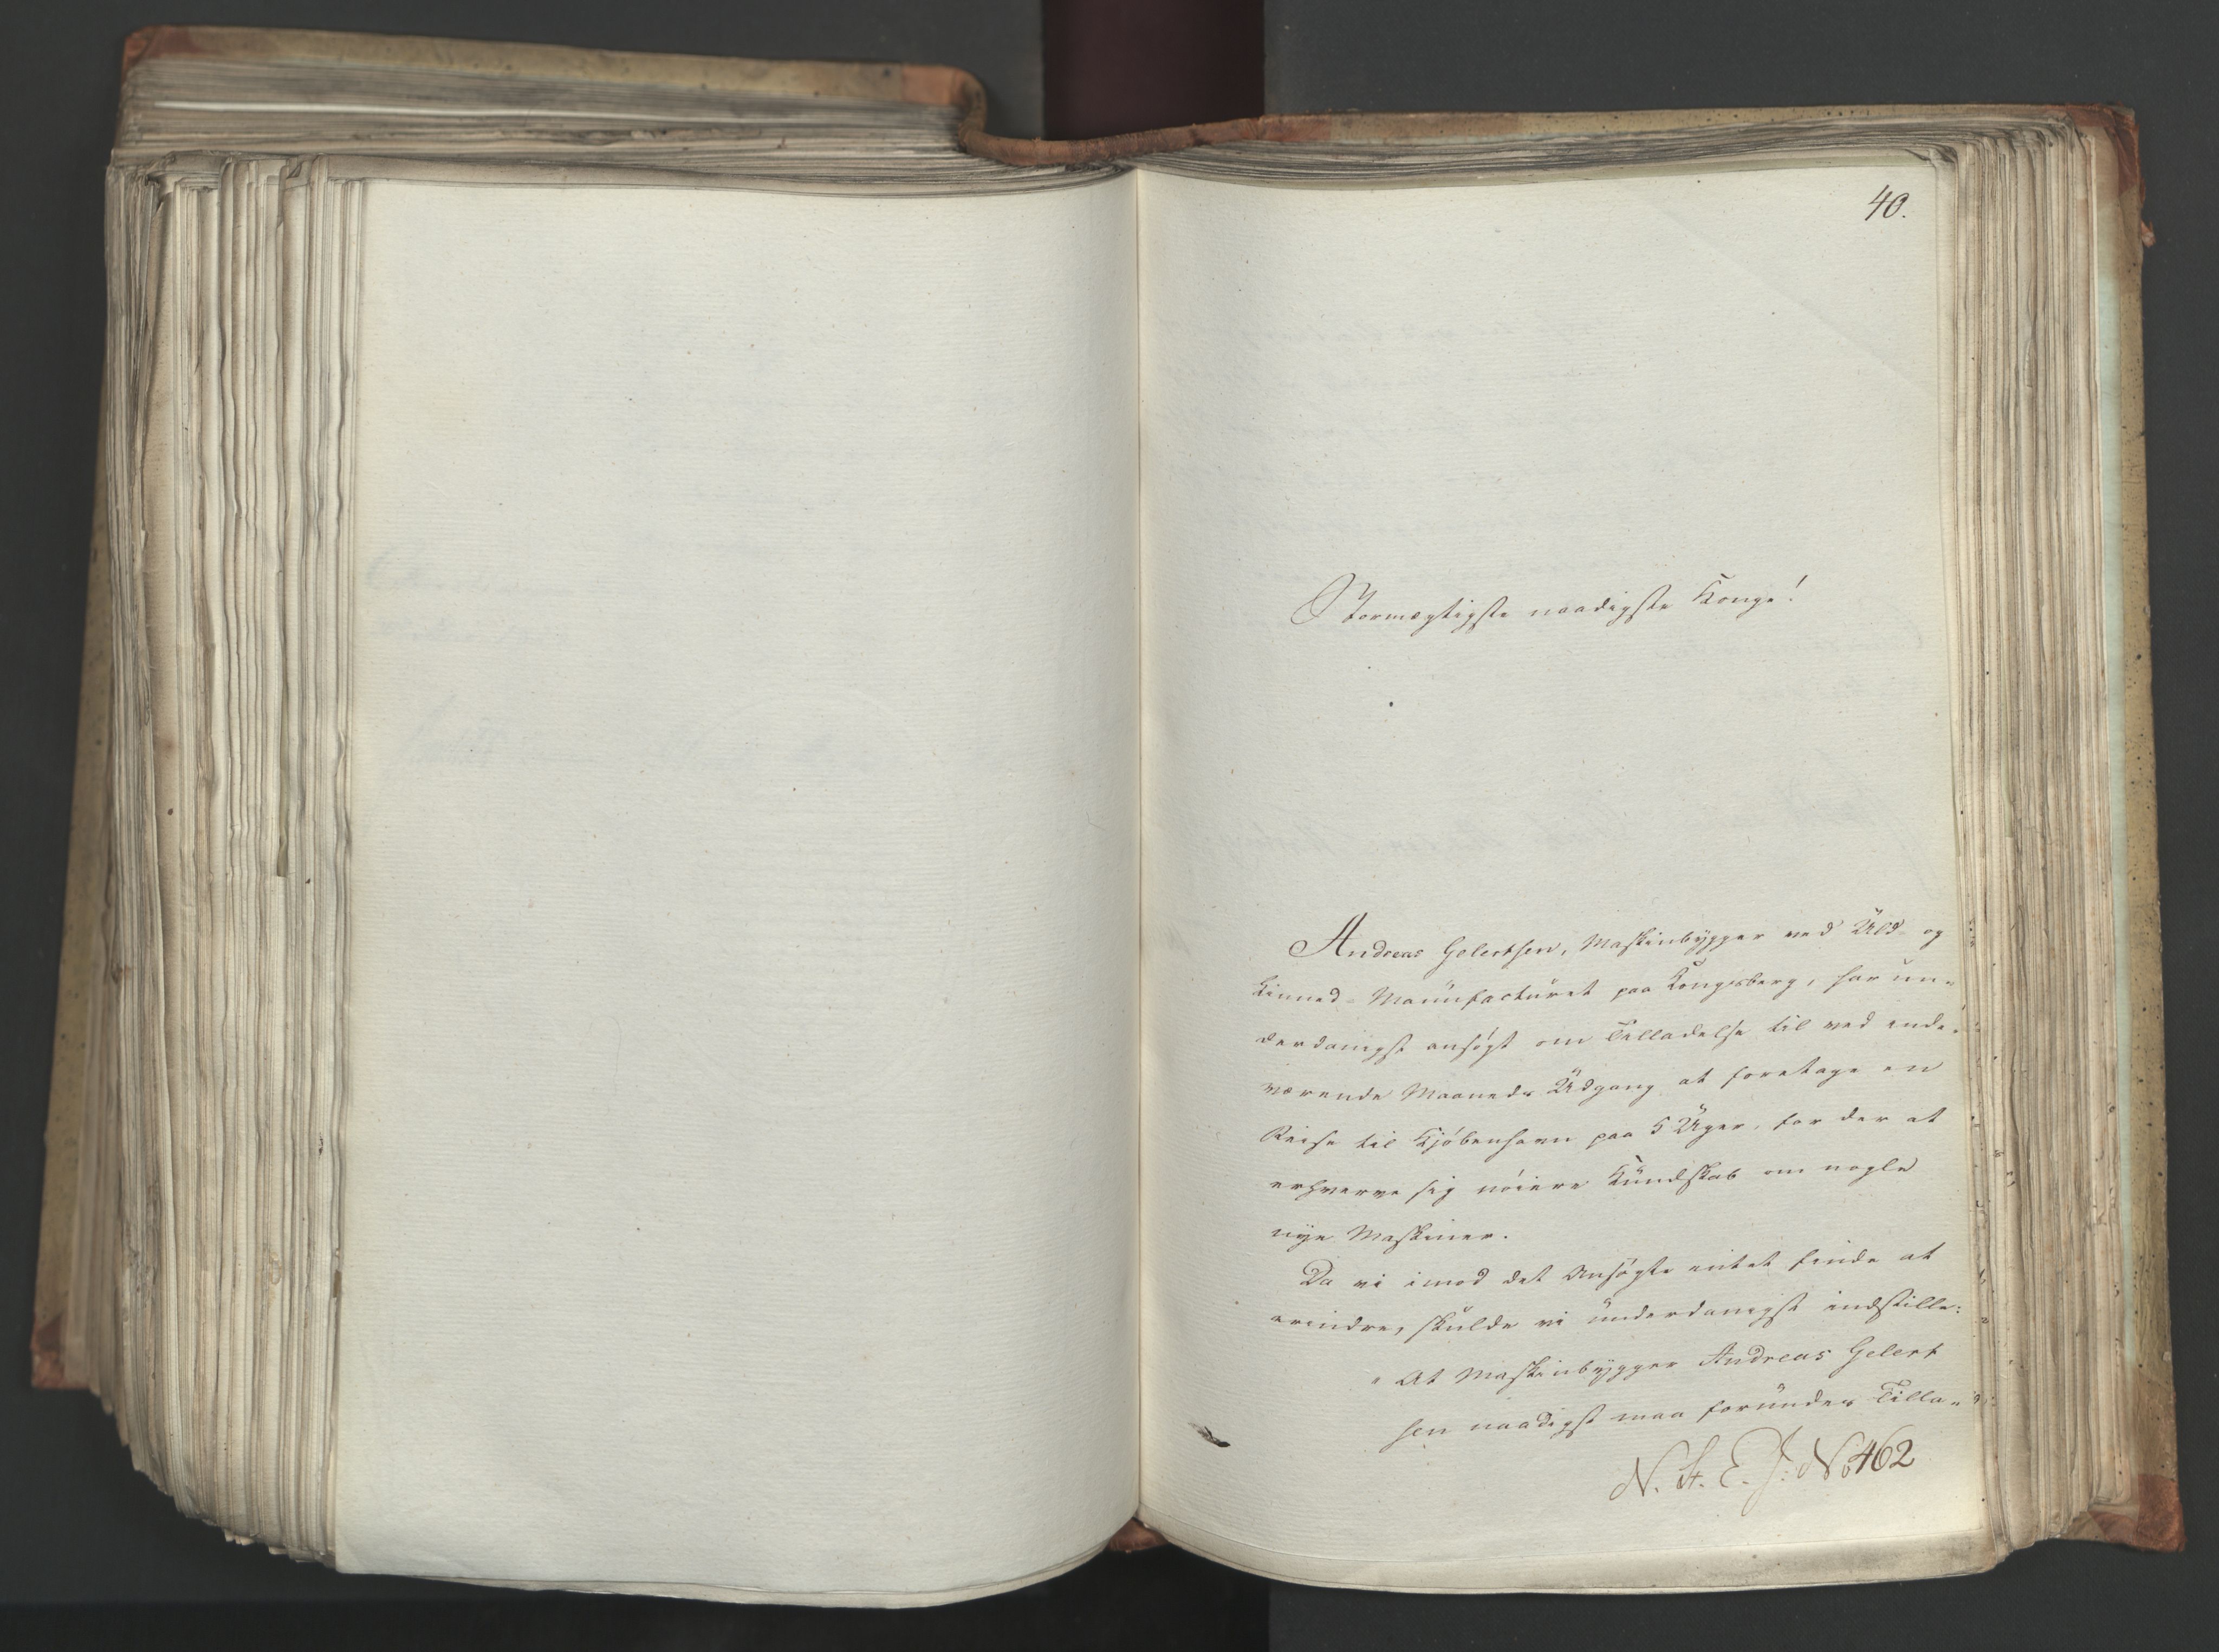 40.
Stormægtigste naadigste Konge!
Andreas Gelertsen, Maskinbygger ved Uld- og
Linned-Manufacturet paa Kongsberg, har un-
derdanigst ansøgt om Tilladelse til ved inde-
værende Maaneds Udgang at foretage en
Reise til Kjøbenhavn paa 5 Uger, for der at
erhverve sig nøiere Kundskab om nogle
nye Maskiner.
Da vi imod det Ansøgte intet finde at
erindre, skulde vi underdanigst indstille:
"At Maskinbygger Andreas Gelert
sen naadigst maa forundes Tilla-
N. F. E. J: No 462